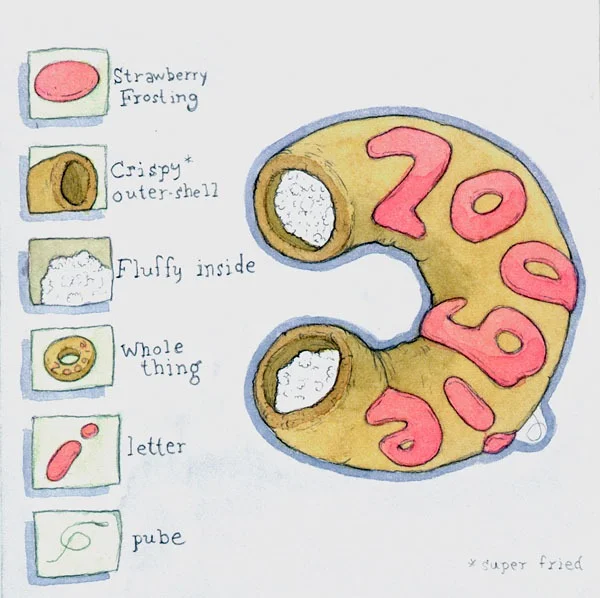 Strawberry
Frosting
Crispy*
outer-shell
Fluffy inside
Whole
thing
letter
pube
Zoogie
Zoogie
*super fried